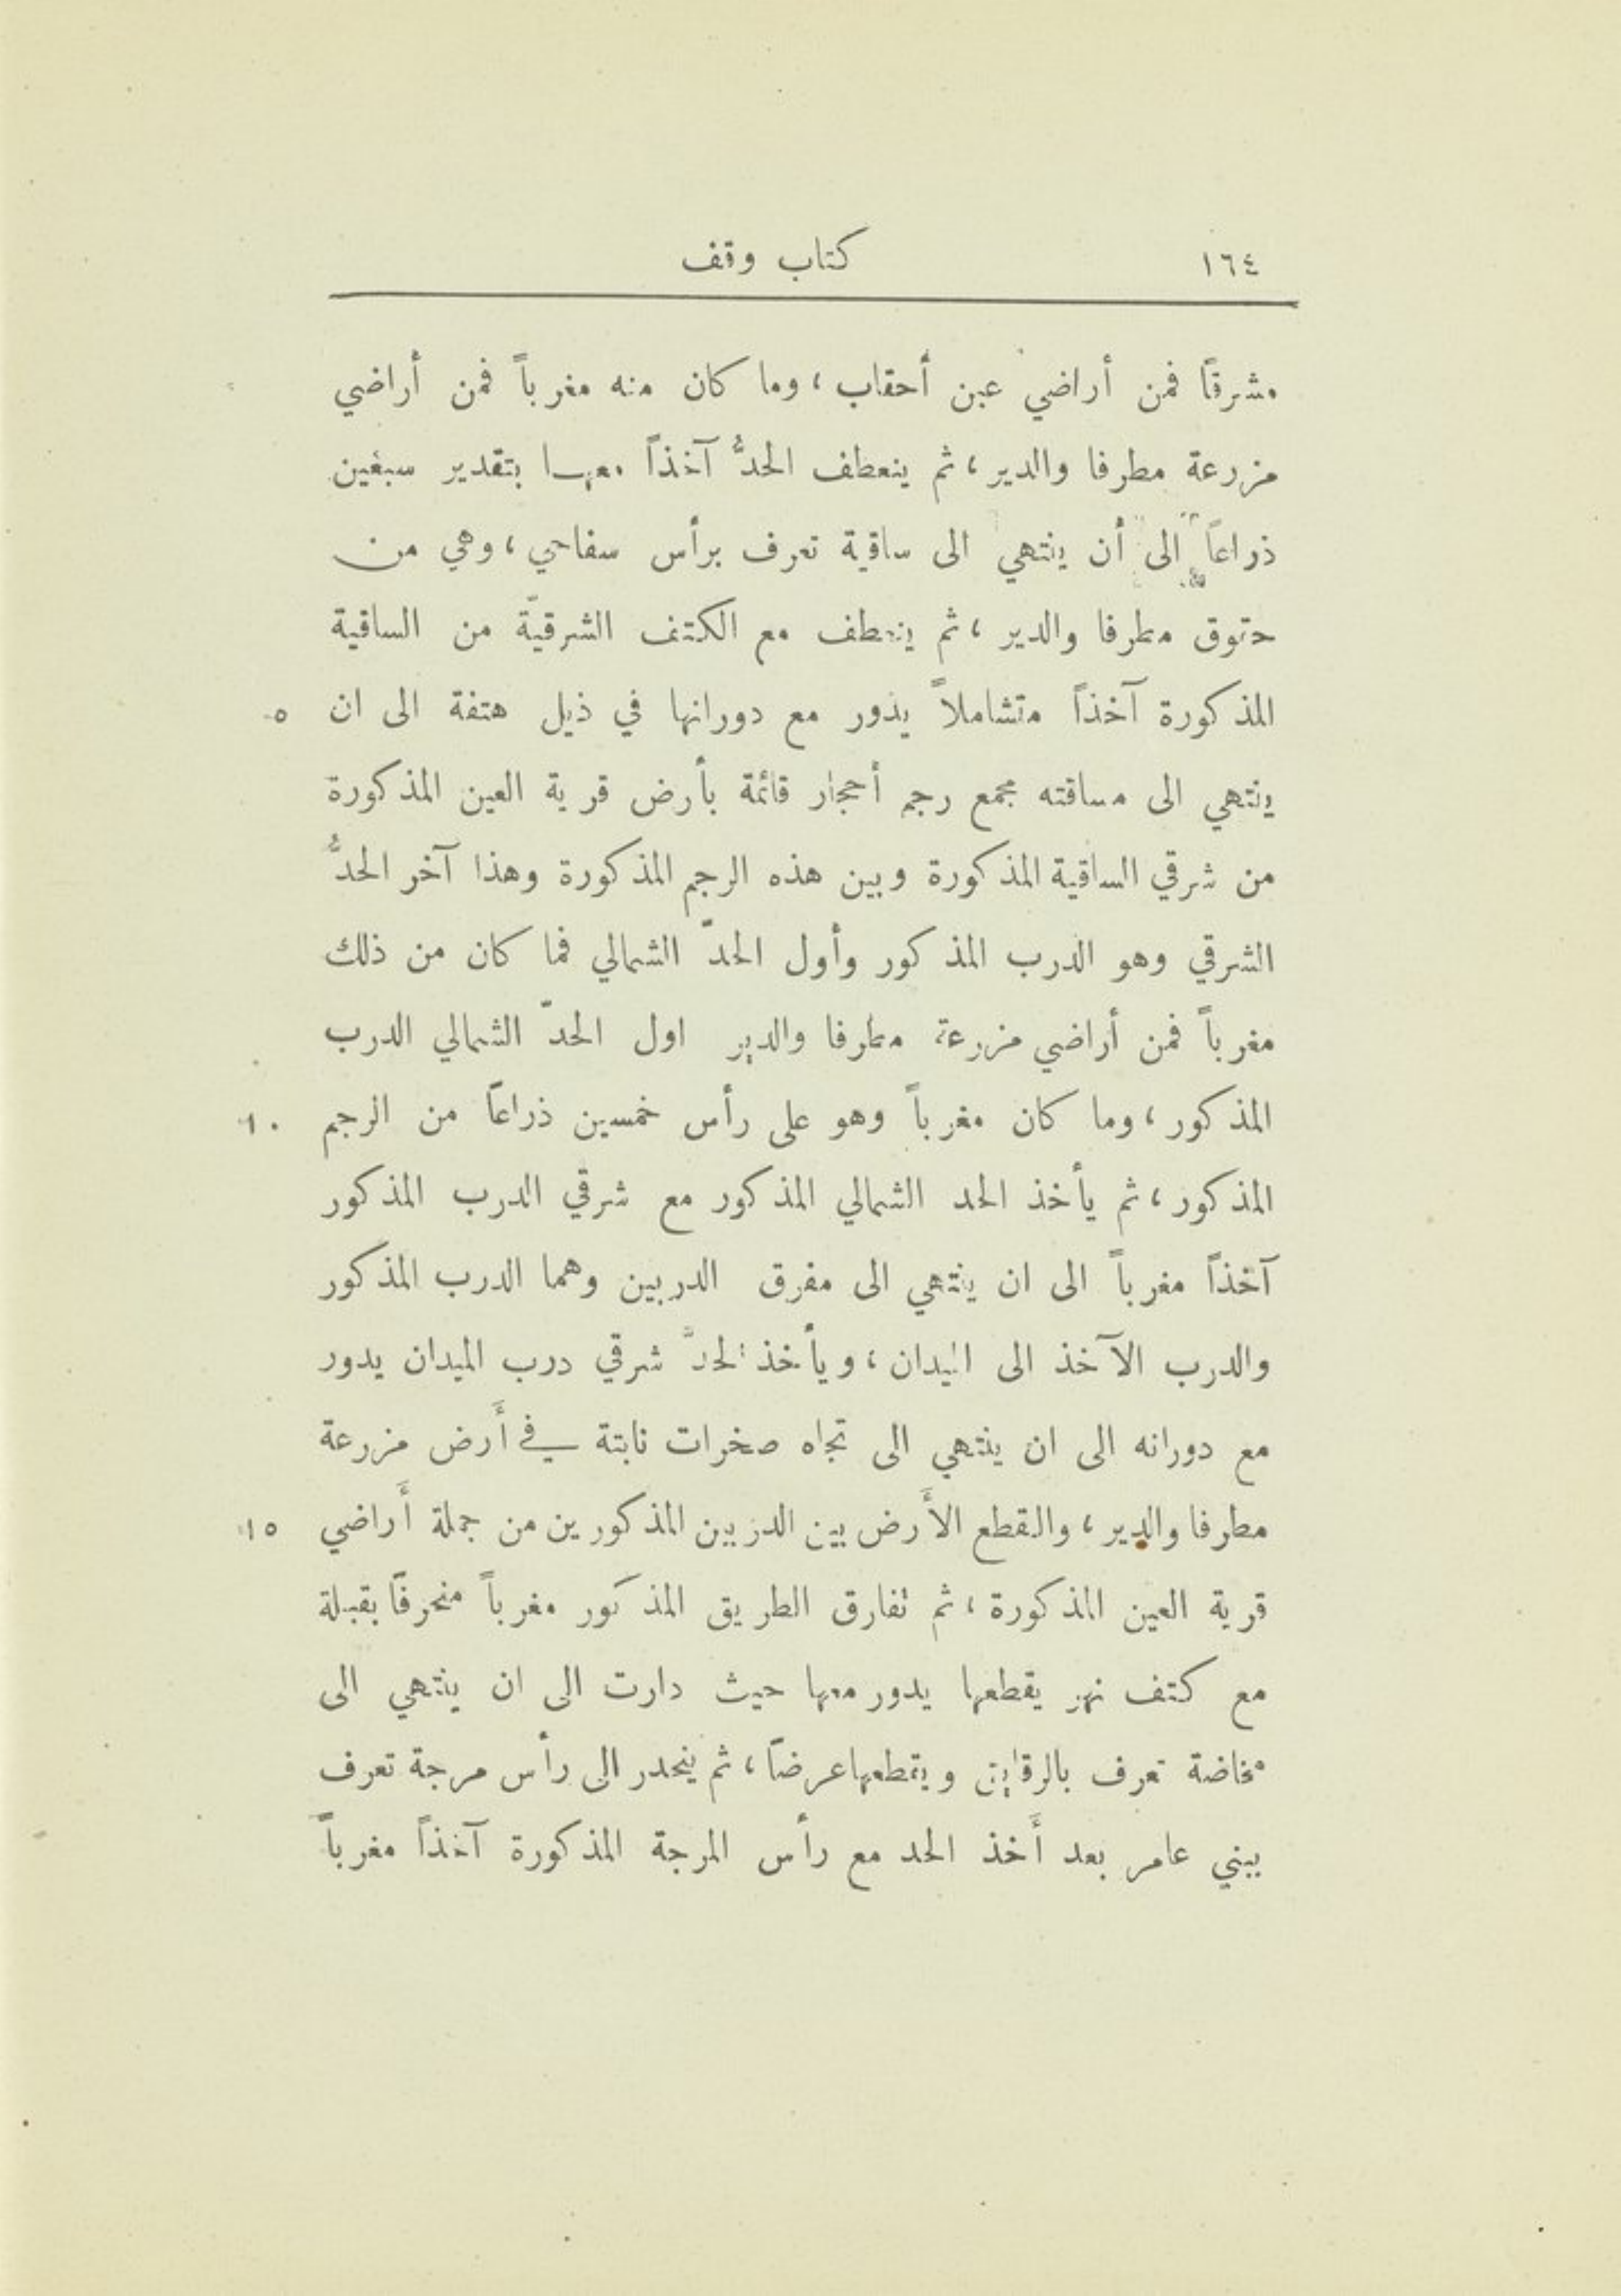 ١٦٤
كتاب وقف
مشرقًا فمن أراضي عين أحقاب، وما كان منه مغرباً فمن أراضي
مزرعة مطرفا والدير، ثم ينعطف الحدُّ آخذاً معها بتقدير سبعين
ذراعاً الى أن ينتهي الى ساقية تعرف برأس سفاحي، وهي من
حقوق مطرفا والدير، ثم ينعطف مع الكتف الشرقيّة من الساقية
المذكورة آخذاً متشاملاً يدور مع دورانها في ذيل هتفة الى ان ٥
ينتهي الى مساقته مجمع رجم أحجار قائمة بأرض قرية العين المذكورة
من شرقي الساقية المذكورة وبين هذه الرجم المذكورة وهذا آخر الحدُّ
الشرقي وهو الدرب المذكور وأول الحدّ الشمالي فما كان من ذلك
مغرباً فمن أراضي مزرعة مطرفا والدير اول الحدّ الشمالي الدرب
المذكور، وما كان مغرباً وهو على رأس خمسين ذراعاً من الرجم ١٠
المذكور، ثم يأخذ الحد الشمالي المذكور مع شرقي الدرب المذكور
آخذاً مغرباً الى ان ينتهي الى مفرق الدربين وهما الدرب المذكور
والدرب الآخذ الى الميدان، ويأخذ الحدّ شرقي درب الميدان يدور
مع دورانه الى ان ينتهي الى تجاه صخرات نابتة في أَرض مزرعة
مطرفا والدير، والقطع الأَرض بين الدربين المذكورين من جملة أَراضي ١٥
قرية العين المذكورة، ثم تفارق الطريق المذكور مغرباً منحرفًا بقبلة
مع كتف نهر يقطعها يدور معها حيث دارت الى ان ينتهي الى
مخاضة تعرف بالرقابن ويقطعها عرضاً، ثم ينحدر الى رأس مرجة تعرف
ببني عامر بعد أَخذ الحد مع رأس المرجة المذكورة آخذاً مغرباً